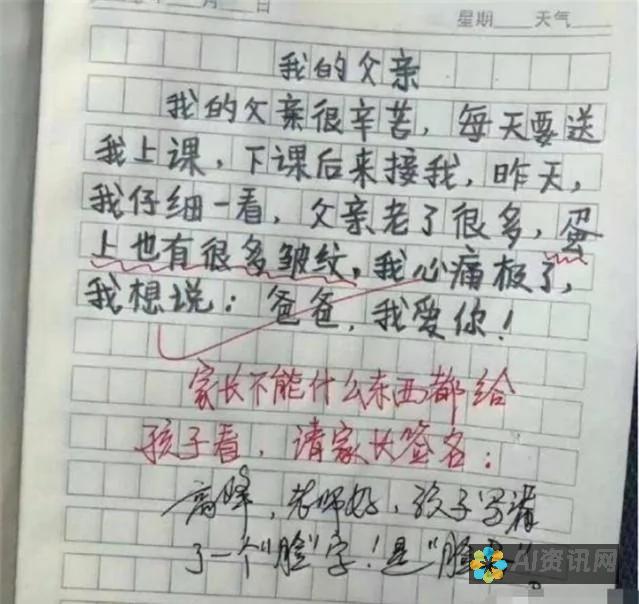 月 日
星期 天气
我的父亲
我的父亲很辛苦，每天要送
我上课，下课后来接我，昨天，
我仔细一看，父亲老了很多，蛋
上也有很多皱纹。我心痛极了，
我想说：爸爸，我爱你！
家长不能什么东西都给
孩子看，请家长签名：
高峰，老师好，孩子写漏
了一个"脸"字！是"脸蛋"！
AI资讯网